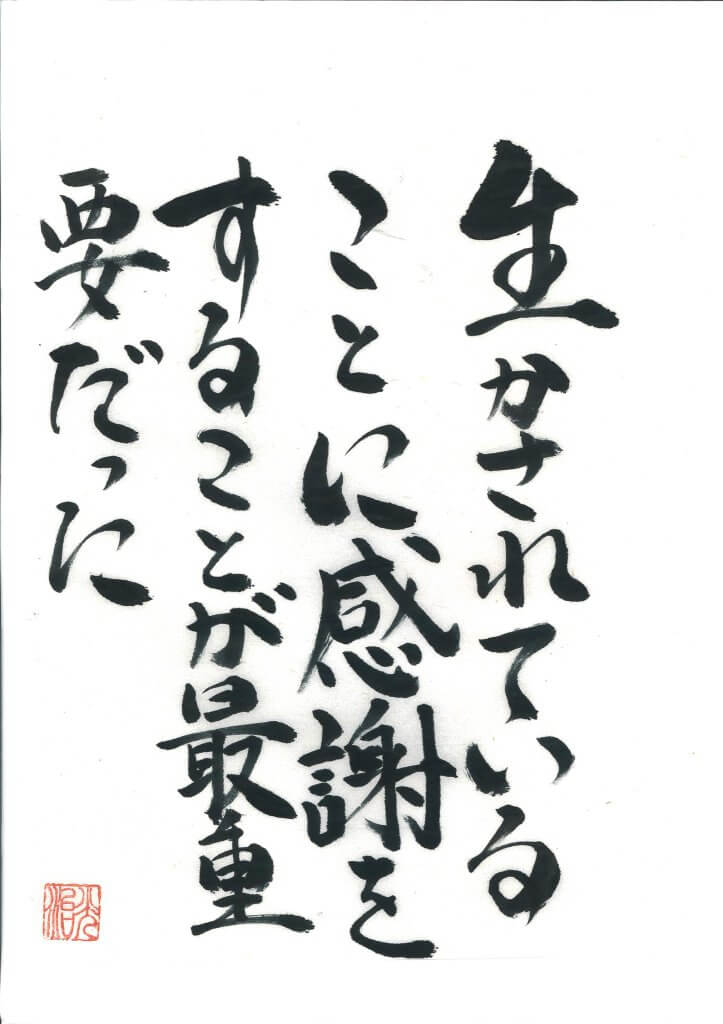 生かされている
ことに感謝を
することが最重
要だった